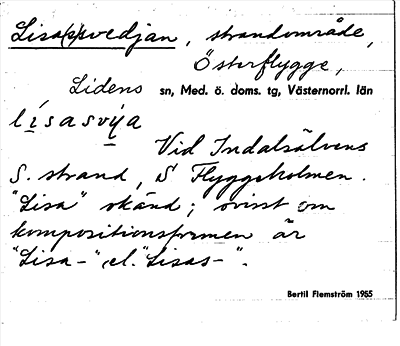 Lisa(s)svedjan, strandområde,
Österflygge,
Lidens sn, Med. ö. doms. tg, Västernorrl. län
lísasvẏa
Vid Indalsälvens
S. strand, S Flyggeholmen.
"Lisa" okänd; ovisst om
kompositionsformen är
"Lisa-" el. "Lisas-".
Bertil Flemström 1985